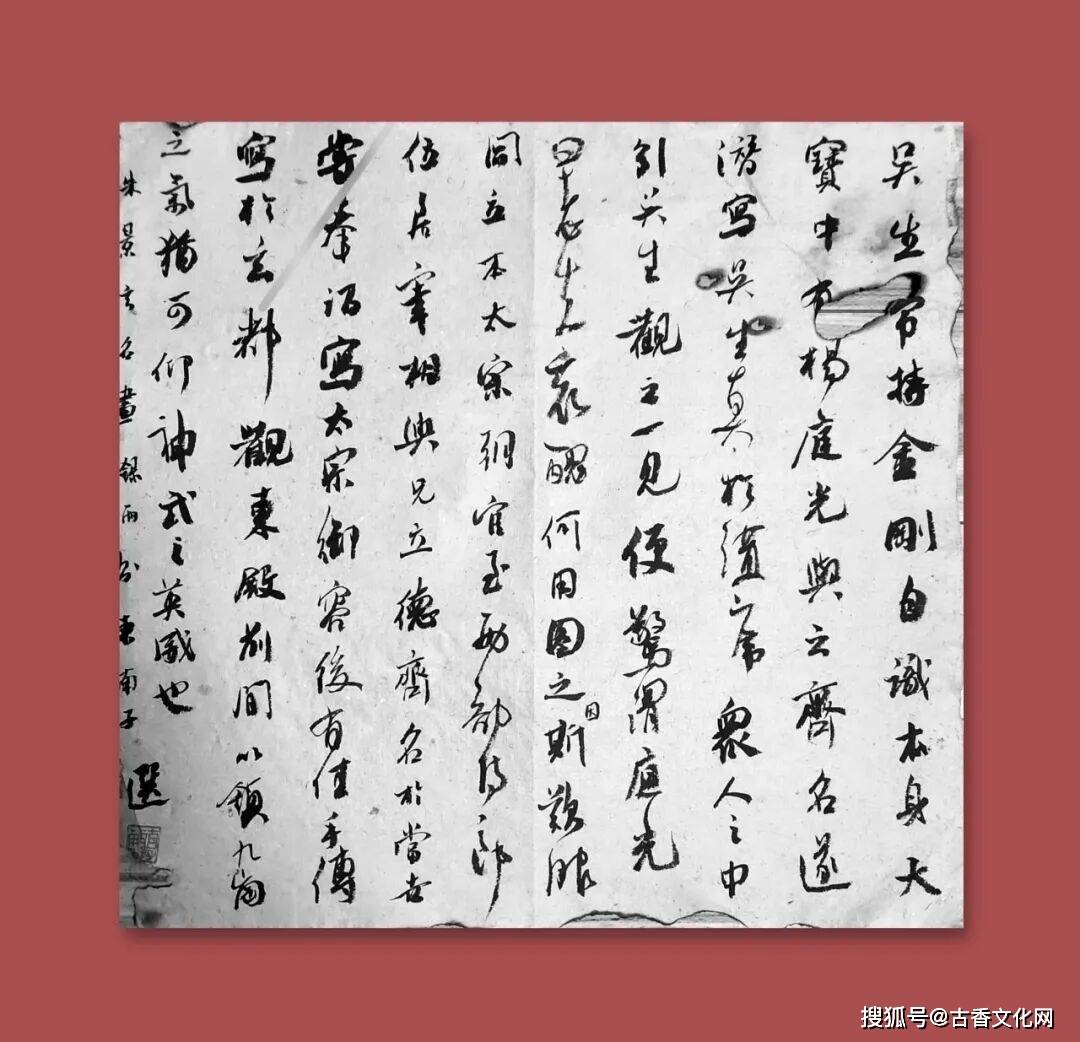 吳生常持金剛自識本身天
寶中有楊庭光與之齊名遂
潛寫吳生真於講席眾人之中
引吳生觀之一見便驚謂庭光
曰老夫衰醜何用圖之因斯歎服
閻立本太宗朝官至刑部侍郎
位居宰相與兄立德齊名於當世
嘗奉詔寫太宗御容後有佳手傳
寫於玄都觀東殿前間以鎮九崗
之氣猶可仰神武之英威也
朱景玄名畫錄兩則東南子選
搜狐号@古香文化网